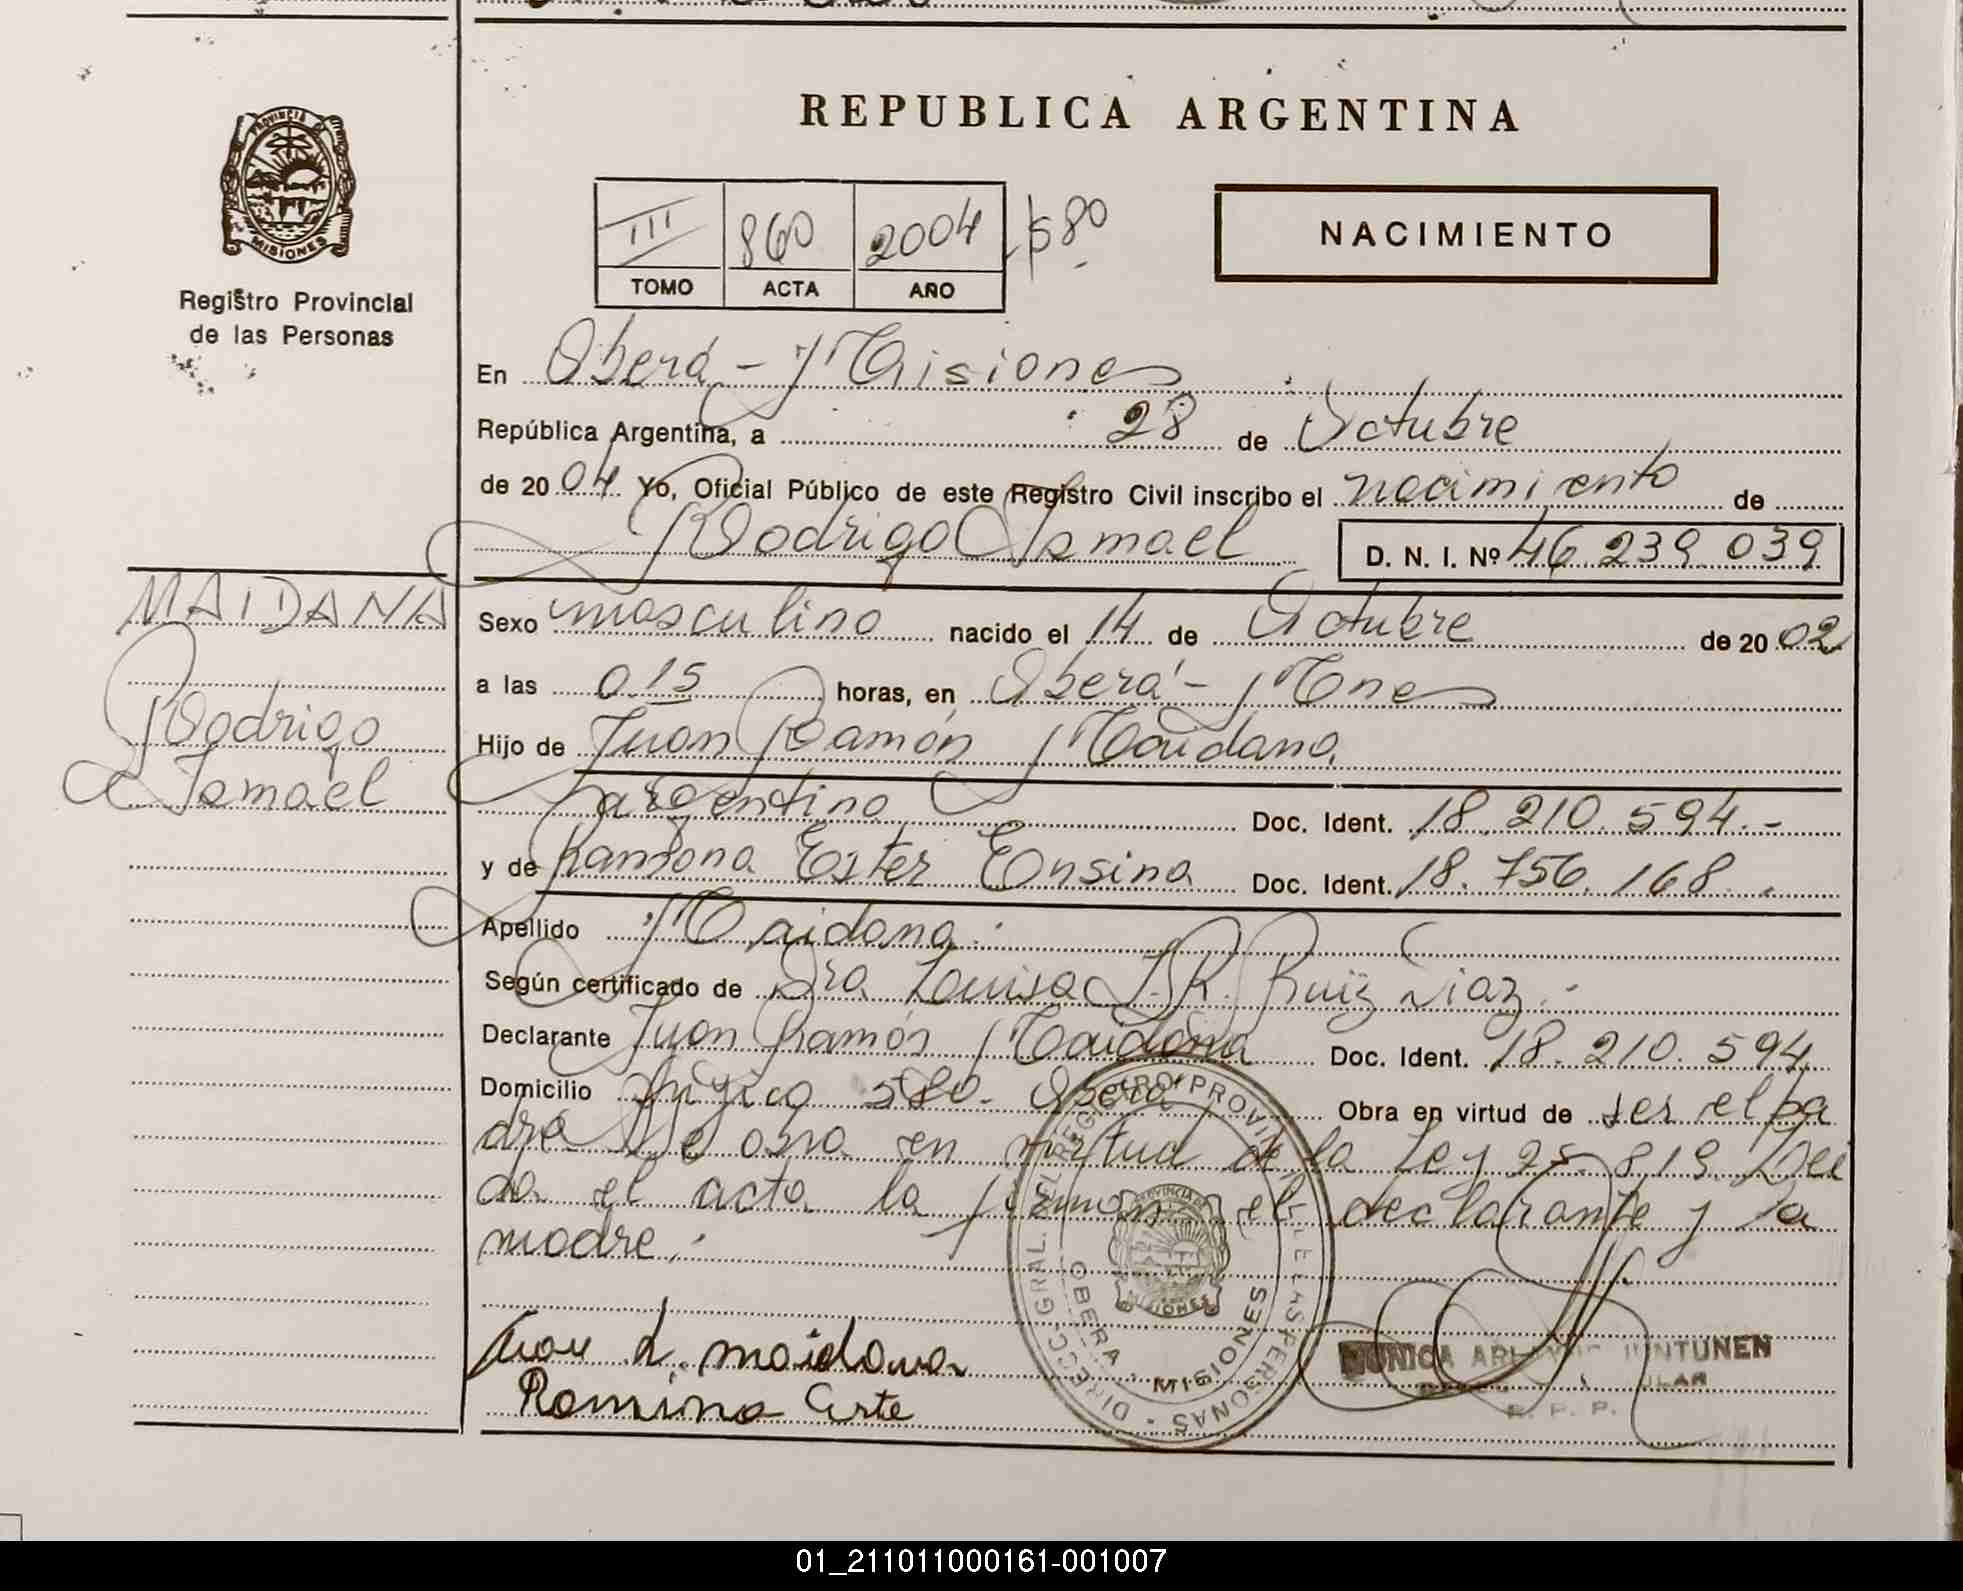 REPUBLICA ARGENTINA
PROVINCIA DE
MISIONES
Registro Provincial
de las Personas
III 860 2004 580
TOMO ACTA AÑO
NACIMIENTO
En Oberá - Misiones
República Argentina, a 28 de Octubre
de 2004 Yo, Oficial Público de este Registro Civil inscribo el nacimiento de
Rodrigo Ismael D. N. I. Nº 46 239 039
MAIDANA
Rodrigo
Ismael
Sexo masculino nacido el 14 de Octubre de 2002
a las 0.15 horas, en Oberá - Mnes
Hijo de Juan Ramón Maidana
argentino Doc. Ident. 18.210.594.-
y de Ramona Ester Ensina Doc. Ident. 18.756.168.
Apellido Maidana.
Según certificado de Dra Louisa J. R. Ruiz Diaz.-
Declarante Juan Ramón Maidana Doc. Ident. 18.210.594
Domicilio 580. Oberá Obra en virtud de ser el pa
dre Se osra en virtud de la Ley 25.819. Leí
da el acta la firman el declarante y la
madre.
Juan maidana
DIRECC. GRAL. DEL REGISTRO PROVINCIAL DE LAS PERSONAS
PROVINCIA DE
MISIONES
OBERA - MISIONES
MONICA JUNTUNEN
R. P. P.
01_211011000161-001007